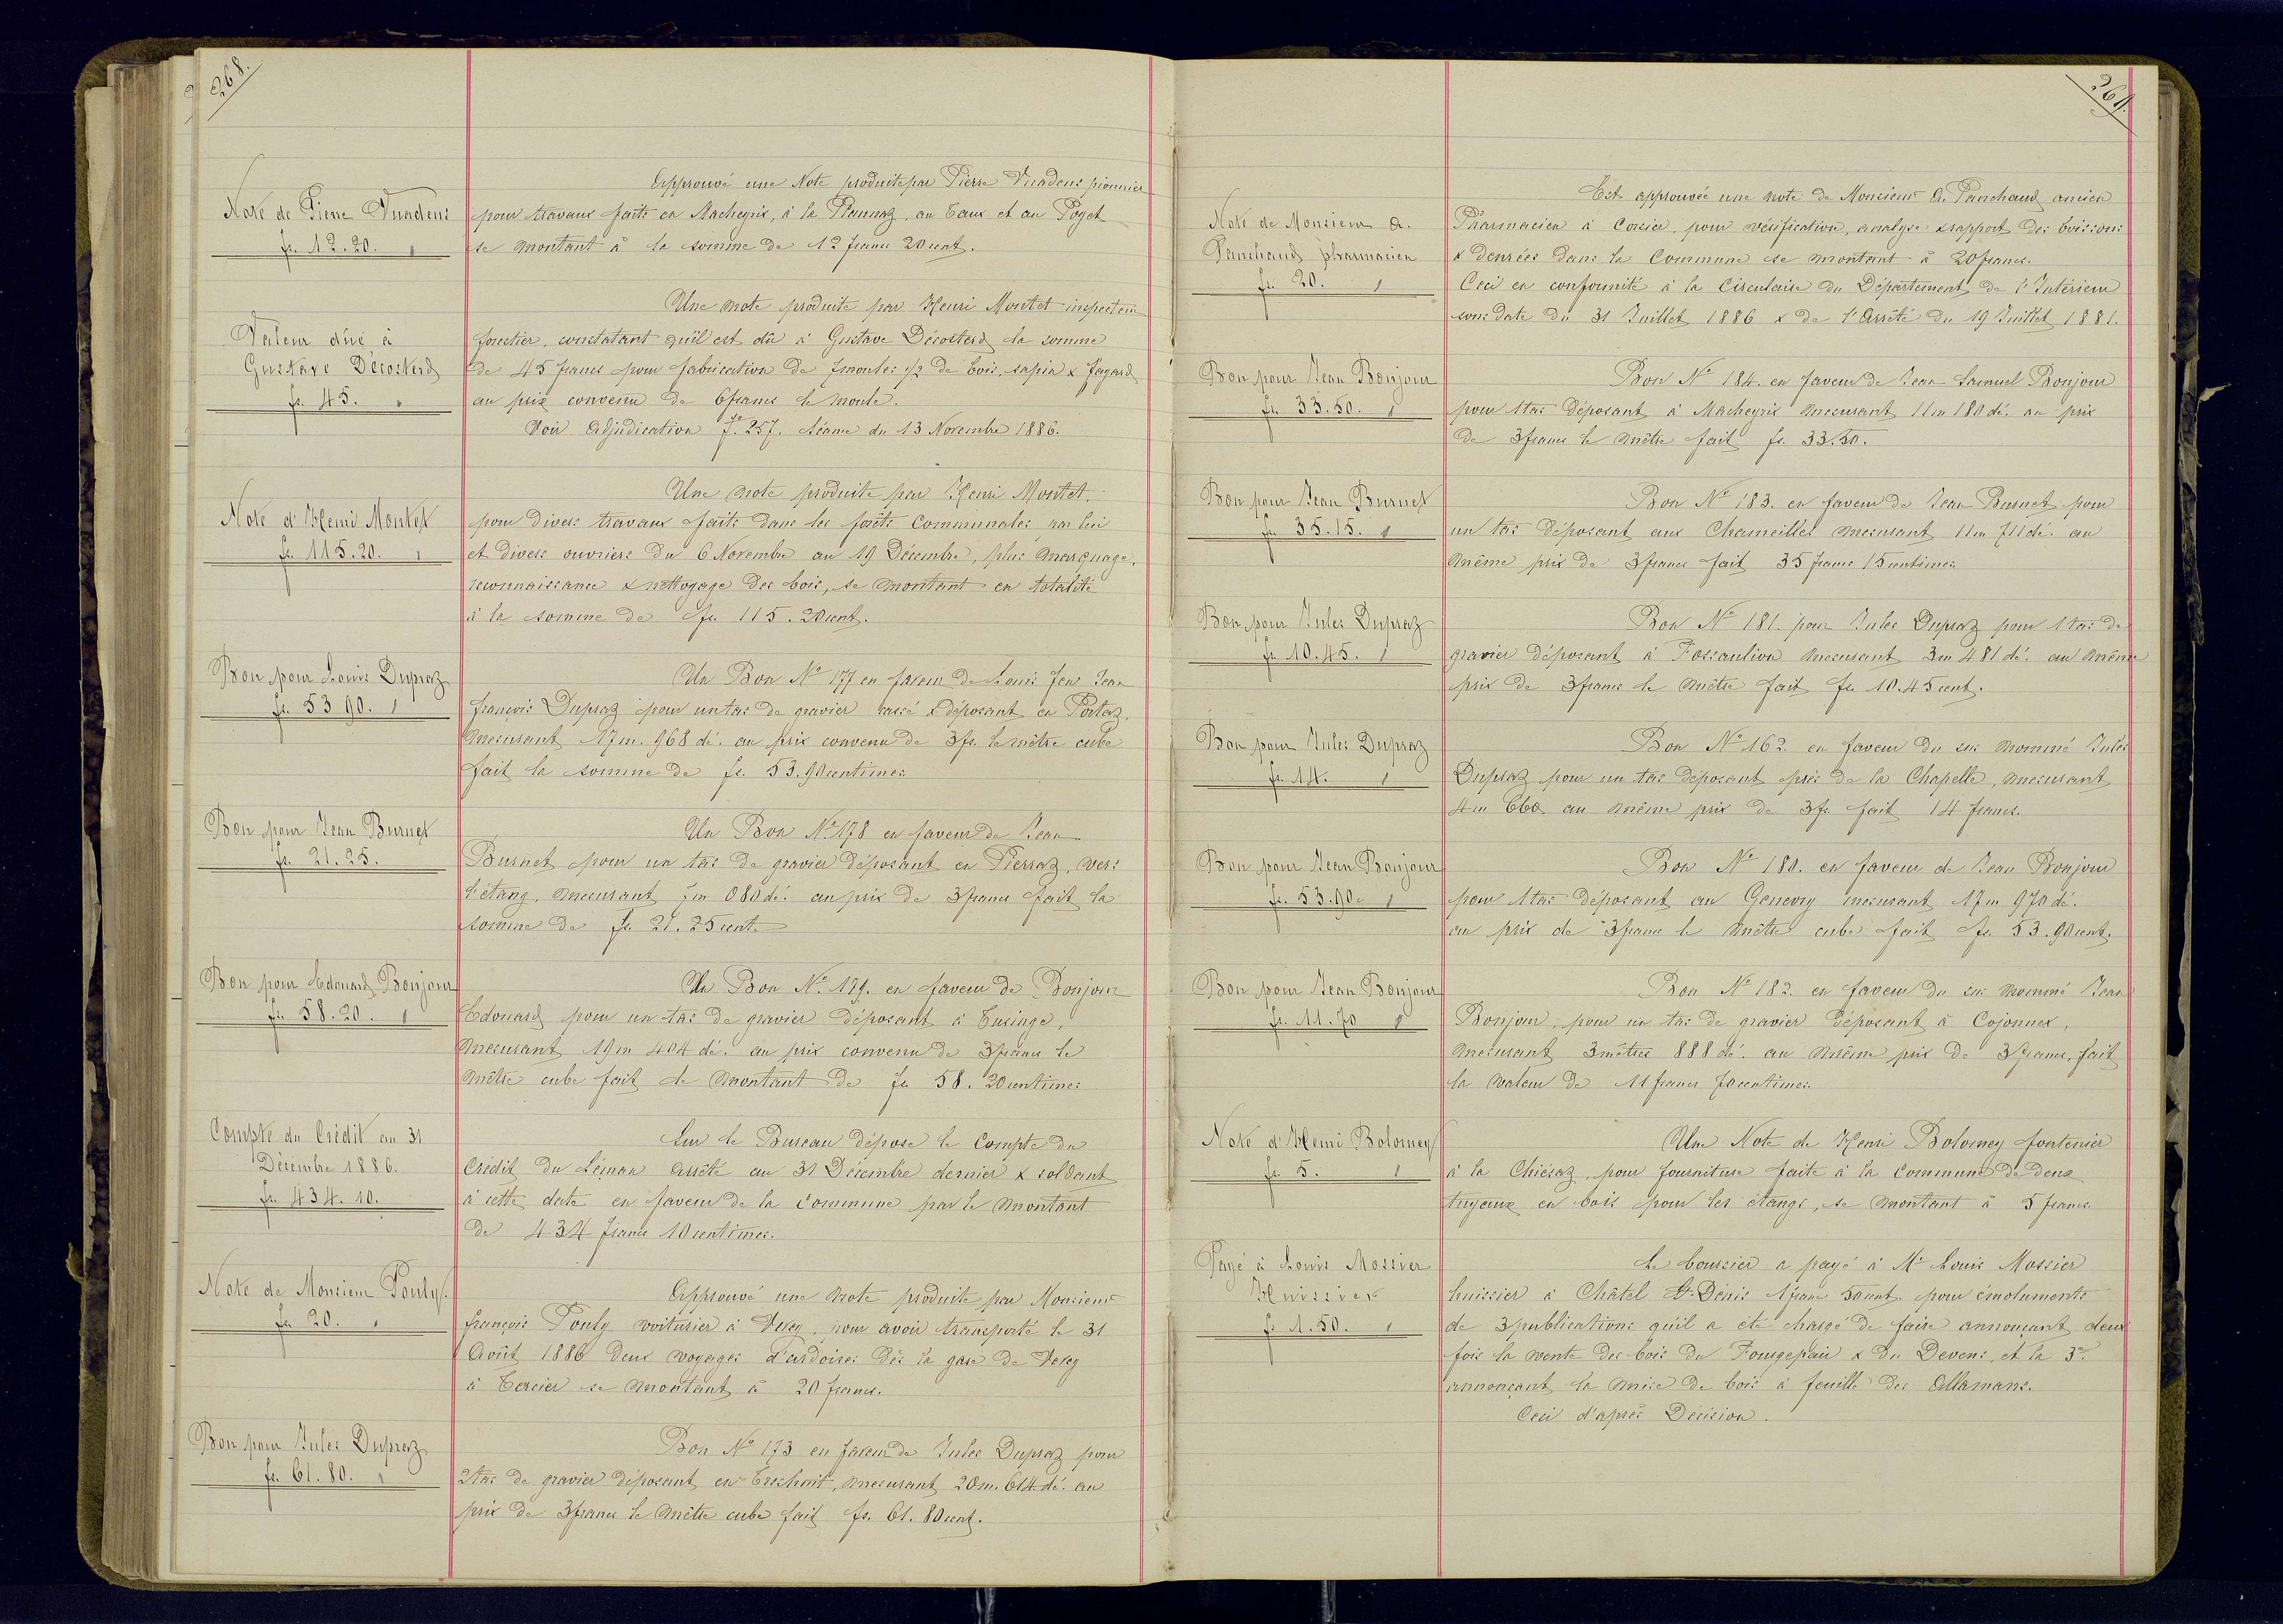 268.
Note de Pierre Vuadens
fr. 12.20.
Approuvé une Note produite par Pierre Vuadens pionnier
pour travaux faits en Macheyrix, à la Plannaz, au Baux et au Poyet
se montant à la somme de 12 francs 20 cent.
Valeur dûe à
Gustave Décosterd
fr. 45.
Une note produite par Henri Montet inspecteur
forestier, constatant qu'il est dû à Gustave Décosterd la somme
de 45 francs pour fabrication de 7 moules 1/2 de bois, sapin & fayard
au prix convenu de 6 francs le moule.
Voir Adjudication f° 257. Séance du 13 Novembre 1886.
Note d'Henri Montet
fr. 115.20.
Une note produite par Henri Montet.
pour divers travaux faits dans les forêts Communales par lui
et divers ouvriers du 6 Novembre au 19 Décembre, plus marquage,
reconnaissance & nettoyage des bois, se montant en totalité
à la somme de fr. 115.20 cent.
Bon pour Louis Dupraz
fr. 53 90.
Un Bon N° 177 en faveur de Louis feu Jean
françois Dupraz pour un tas de gravier cassé & déposant en Portaz,
mesurant 17 m. 968 dé. au prix convenu de 3 fr. le mètre cube
fait la somme de fr. 53.90 centimes
Bon pour Jean Burnet
fr. 21.25.
Un Bon N° 178 en faveur de Jean
Burnet pour un tas de gravier déposant en Pierraz, vers
l'étang, mesurant 7 m 080 dé. au prix de 3 francs fait la
somme de fr. 21.25 cent.
Bon pour Edouard Bonjour
fr. 58.20.
Un Bon N° 179. en faveur de Bonjour
Edouard pour un tas de gravier déposant à Tusinge,
mesurant 19 m 404 dé. au prix convenu de 3 francs le
mètre cube fait le montant de fr 58.20 centimes
Compte du Crédit au 31
Décembre 1886.
fr. 434.10.
Sur le Bureau dépose le Compte du
Crédit du Léman arrêté au 31 Décembre dernier & soldant
à cette date en faveur de la Commune par le montant
de 434 francs 10 centimes.
Note de Monsieur Pouly.
fr. 20.
Approuvé une note produite par Monsieur
françois Pouly voiturier à Vevey, pour avoir transporté le 31
Août 1886 deux voyages d'ardoises dès la gare de Vevey
à Cercier se montant à 20 francs.
Bon pour Jules Dupraz
fr. 61.80.
Bon N° 173 en faveur de Jules Dupraz pour
2 tas de gravier déposant en mesurant 20 m. 614 dé. au
prix de 3 francs le mètre cube fait fr. 61.80 cent.
269.
Note de Monsieur A.
Panchaud pharmacien
fr. 20.
Est approuvée une note de Monsieur A. Panchaud ancien
Pharmacien à Corsier, pour vérification, analyse & rapport des boissons
& denrées dans la Commune se montant à 20 francs.
Ceci en conformité à la Circulaire du Département de l'Intérieur
sous date du 31 Juillet 1886 & de l'Arrêté du 19 Juillet 1881.
Bon pour Jean Bonjour
fr. 33.50.
Bon N° 184. en faveur de Jean Samuel Bonjour
pour 1 tas déposant à Macheyrix mesurant 11 m 180 dé. au prix
de 3 francs le mètre fait fr. 33.50.
Bon pour Jean Burnet
fr. 35.15.
Bon N° 183. en faveur de Jean Burnet pour
un tas déposant aux Chameilles mesurant 11 m 711 dé. au
même prix de 3 francs fait 35 francs 15 centimes
Bon pour Jules Dupraz
fr. 10.45.
Bon N° 181. pour Jules Dupraz pour 1 tas de
gravier déposant à Fossaulion mesurant 3 m 481 dé. au même
prix de 3 francs le mètre fait fr. 10.45 cent.
Bon pour Jules Dupraz
fr. 14.
Bon N° 162. en faveur du sus nommé Jules
Dupraz pour un tas déposant près de la Chapelle, mesurant
4 m 660 au même prix de 3 fr. fait 14 francs.
Bon pour Jean Bonjour
fr. 53.90
Bon N° 180. en faveur de Jean Bonjour
pour 1 tas déposant au Genevrey mesurant 17 m 970 dé.
au prix de 3 francs le mètre cube fait fr. 53.90 cent.
Bon pour Jean Bonjour
fr. 11.70
Bon N° 182. en faveur du sus nommé Jean
Bonjour, pour un tas de gravier déposant à Cojonnex,
mesurant 3 mètres 888 dé. au même prix de 3 francs, fait
la valeur de 11 francs 70 centimes.
Note d'Henri Bolomey
fr. 5.
Une Note de Henri Bolomey fontenier
à la Chiésaz, pour fourniture faite à la Commune de deux
tuyaux en bois pour les étangs, se montant à 5 francs
Payé à Louis Mossier
Huissier
fr. 1.50.
Le boursier a payé à Mr Louis Mossier
huissier à Châtel St-Denis 1 franc 50 cent. pour émoluments
de 3 publications qu'il a été chargé de faire annonçant deux
fois la vente des bois du Fourgepain & du Devens, et la 3e.
annonçant la mise de bois à feuille des Allamans.
Ceci d'après Décision.